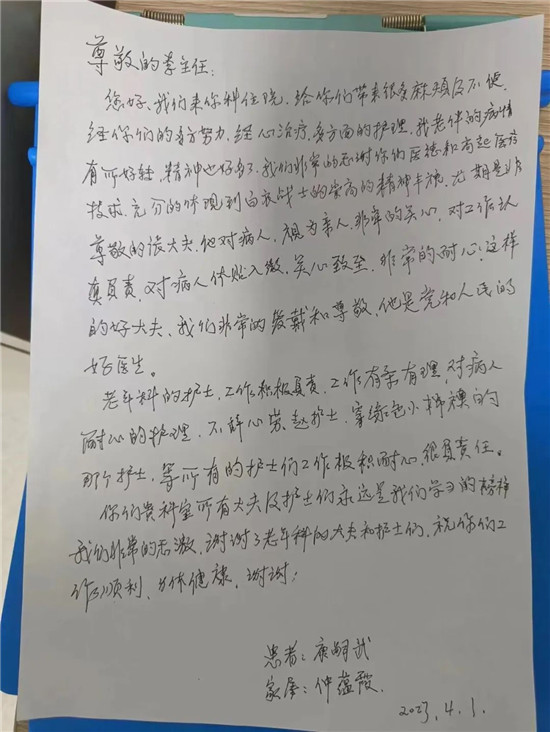 尊敬的李主任：
您好、我们来你科住院，给你们带来很多麻烦及不便，
经你们的多方努力，经心治疗，多方面的护理，我老伴的病情
有所好转，精神也好多了，我们非常的感谢你们医德和高超医疗
技术，充分的体现到白衣战士的崇高的精神丰穗，尤期是
尊敬的张大夫，他对病人，视为亲人，非常的关心，对工作认
真负责，对病人体贴入微，关心致至，非常的耐心，这样
的好大夫、我们非常的爱戴和尊敬，他是党和人民的
好医生。
老年科的护士，工作积极负责，工作有条有理，对病人
耐心的护理，不辞心劳，赵护士，穿绿色小
那个护士，等所有的护士们工作极积耐心，很负责任。
你们贵科室所有大夫及护士们永远是我们学习的榜样
我们非常的感激，谢谢了老年科的大夫和护士们，祝你们工
作顺利，身体健康，谢谢！
患者：康嗣武
家属：仲蕴霞
2023.4.1.